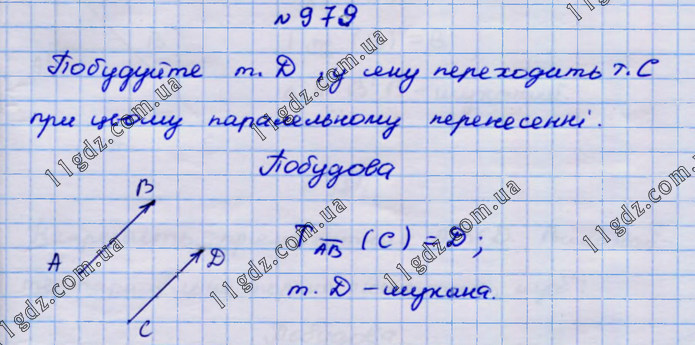 №979
Побудуйте т. D, у яку переходить т. C
при цьому паралельному перенесенні.
Побудова
B
A
T AB (C) = D;
D
т. D – шукана.
C
11gdz.com.ua
11gdz.com.ua
11gdz.com.ua
11gdz.com.ua
11gdz.com.ua
11gdz.com.ua
11gdz.com.ua
11gdz.com.ua